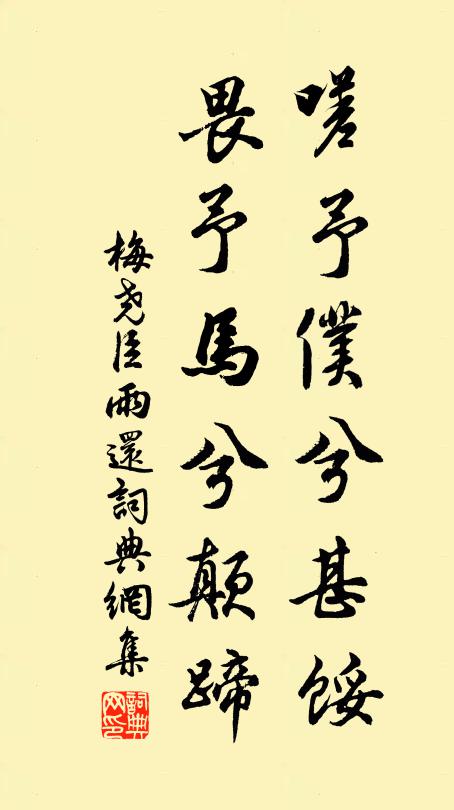 嗟予僕兮甚餒
畏予馬兮顛蹄
梅尧臣雨還詞典網集
詞典网印